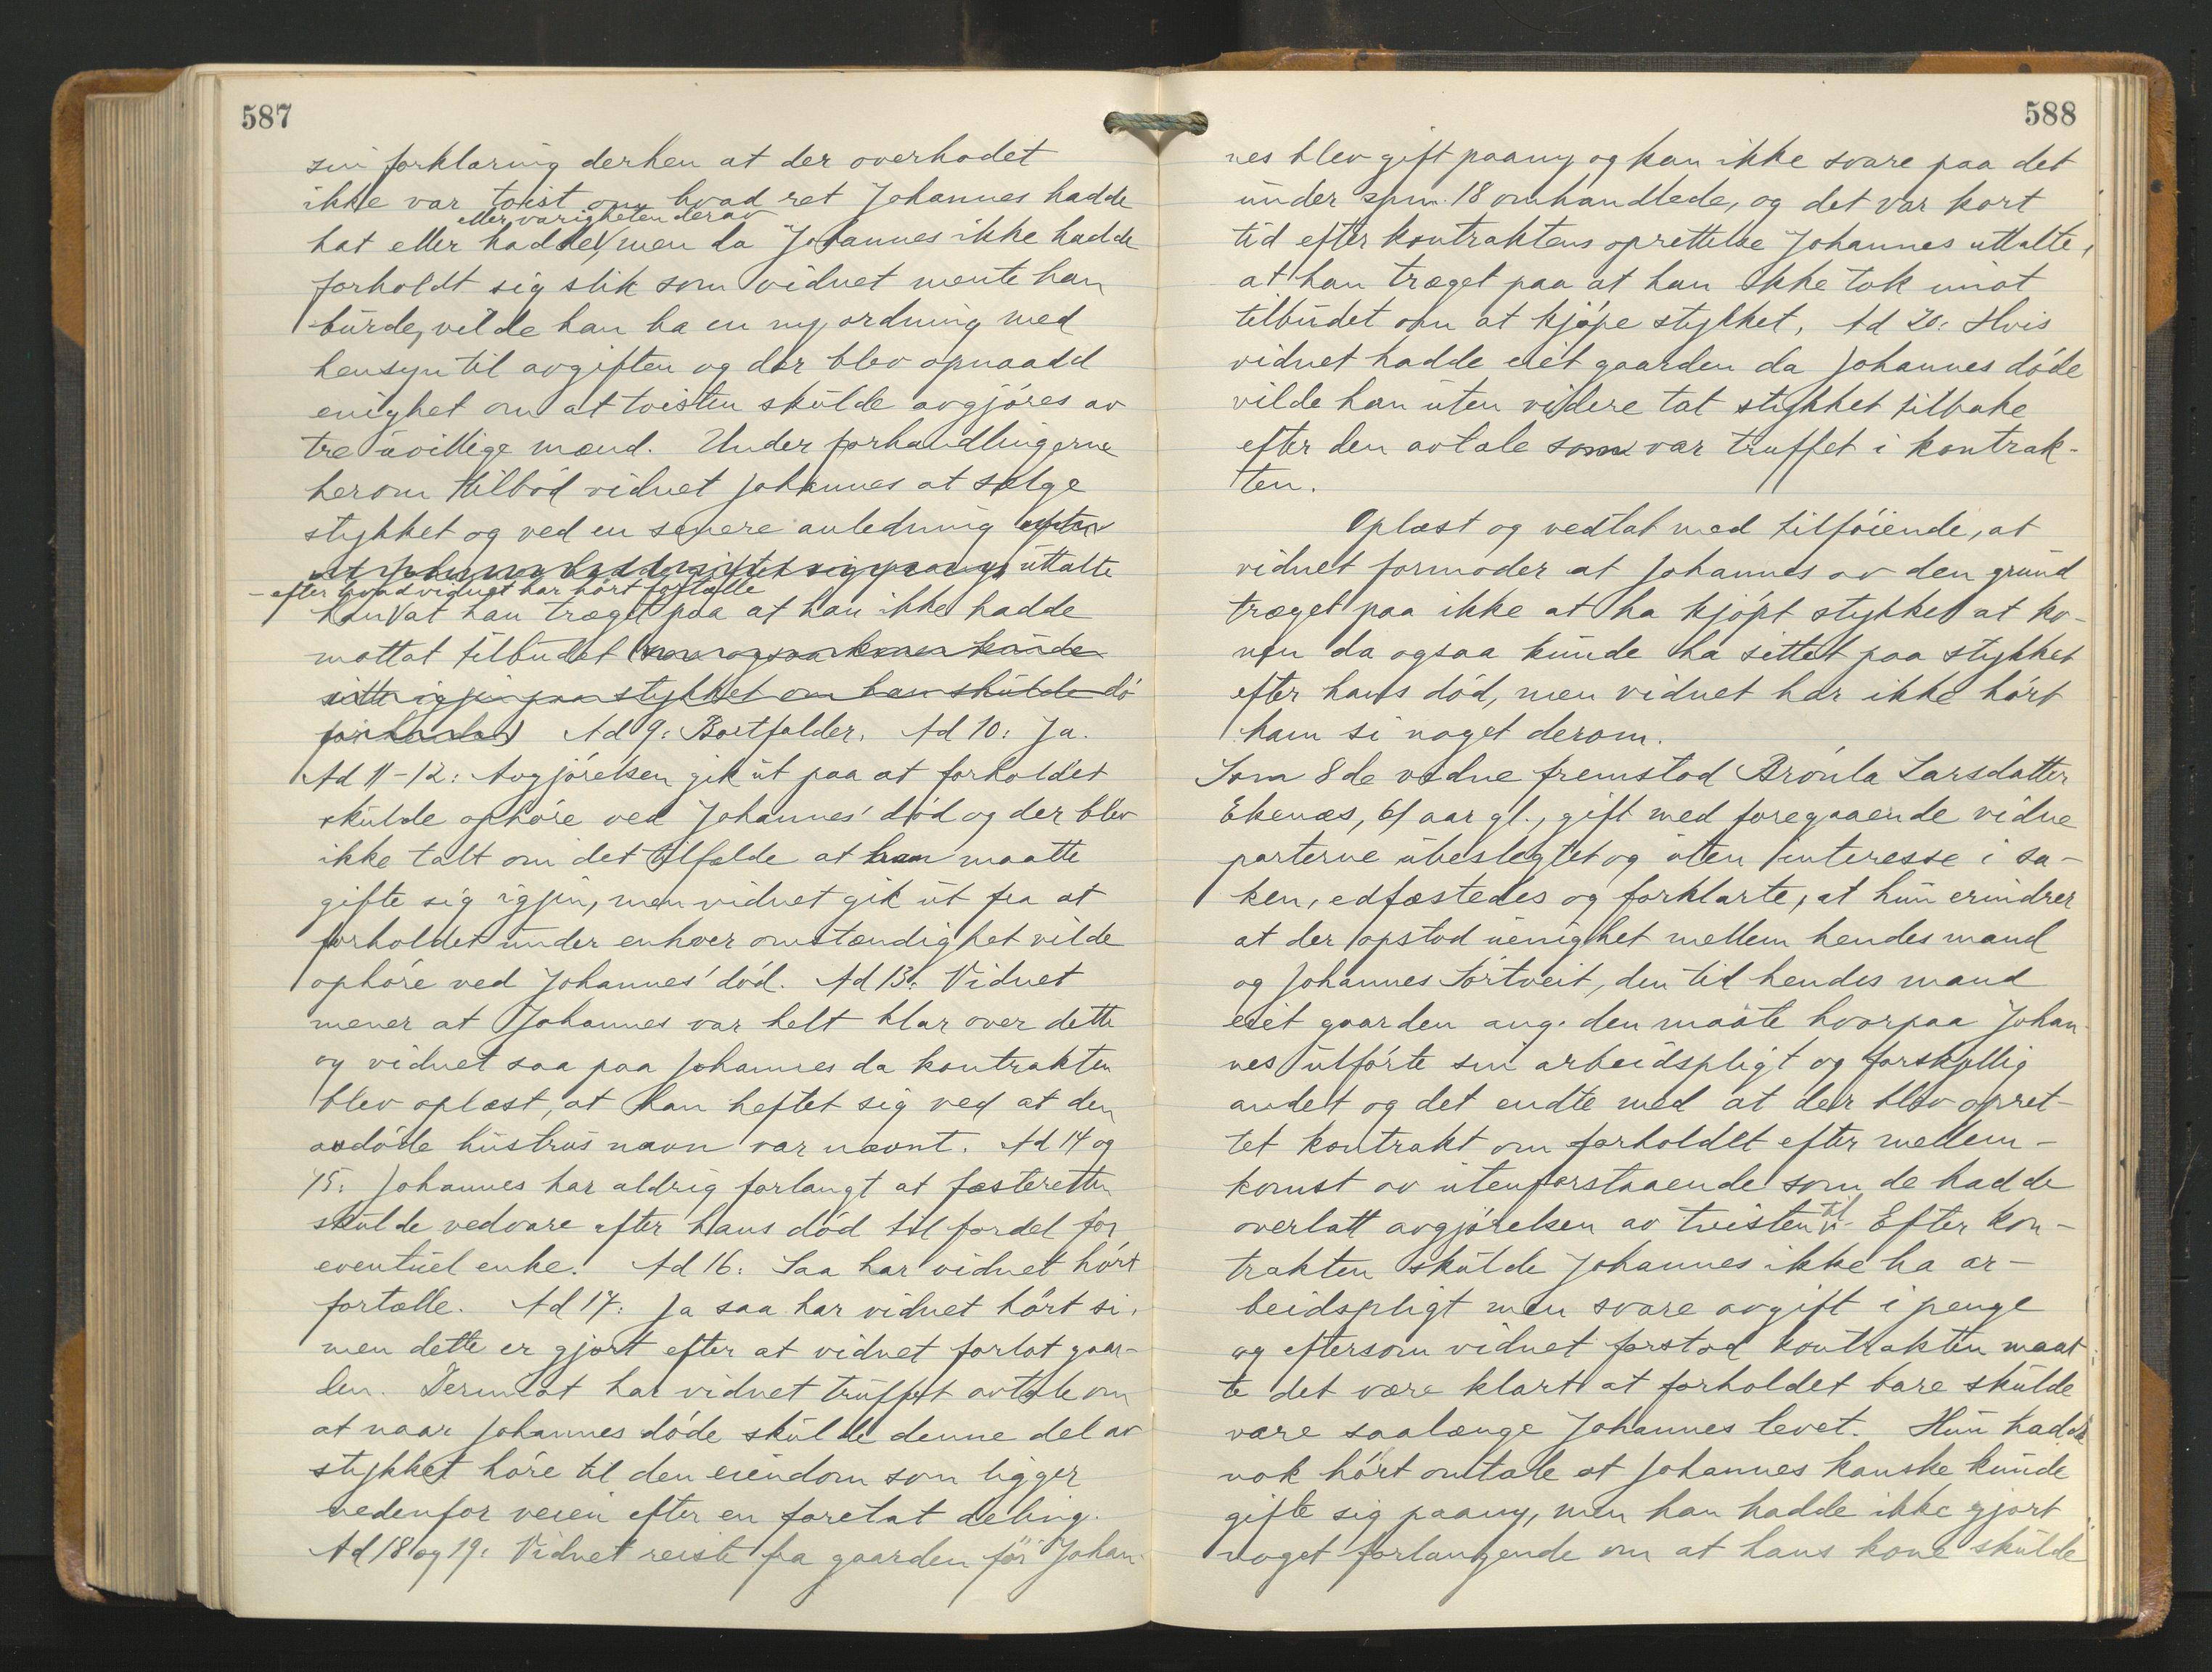 587
sin forklaring derhen at der overhodet
ikke var tvist om hvad ret Johannes hadde
eller varigheten derav
hat eller hadde, men da Johannes ikke hadde
forholdt sig slik som vidnet mente han
burde, vilde han ha en ny ordning med
hensyn til avgiften og der blev opnaadd
enighet om at tvisten skulde avgjøres av
tre uvillige mænd. Under forhandlingerne
herom tilbød vidnet Johannes at sælge
stykket og ved en senere anledning efter
at Johannes hadde giftet sig paany uttalte
- efter hvad vidnet har hørt fortælle
han at han træget paa at han ikke hadde
mottat tilbudet
sitte igjen paa stykket om han skulde dø
før hende) Ad 9: Bortfalder. Ad 10: Ja.
Ad 11-12: Avgjørelsen gik ut paa at forholdet
skulde ophøre ved Johannes' død og der blev
ikke talt om det tilfælde at han maatte
gifte sig igjen, men vidnet gik ut fra at
forholdet under enhver omstændighet vilde
ophøre ved Johannes' død. Ad 13: Vidnet
mener at Johannes var helt klar over dette
og vidnet saa paa Johannes da kontrakten
blev oplæst, at han heftet sig ved at den
avdøde hustrus navn var nævnt. Ad 14 og
15: Johannes har aldrig forlangt at fæsteretten
skulde vedvare efter hans død til fordel for
eventuel enke. Ad 16: Saa har vidnet hørt
fortælle. Ad 17: Ja saa har vidnet hørt si,
men dette er gjort efter at vidnet forlot gaar-
den. Derimot har vidnet truffet avtale om
at naar Johannes døde skulde denne del av
stykket høre til den eiendom som ligger
nedenfor veien efter en foretat deling.
Ad 18 og 19: Vidnet reiste fra gaarden før Johan-
588
nes blev gift paany og kan ikke svare paa det
under spm. 18 omhandlede, og det var kort
tid efter kontraktens oprettelse Johannes uttalte,
at han træget paa at han ikke tok imot
tilbudet om at kjøpe stykket. Ad 20: Hvis
vidnet hadde eiet gaarden da Johannes døde
vilde han uten videre tat stykket tilbake
efter den avtale som var truffet i kontrak-
ten.
Oplæst og vedtat med tilføiende, at
vidnet formoder at Johannes av den grund
træget paa ikke at ha kjøpt stykket at ko-
nen da ogsaa kunde ha sittet paa stykket
efter hans død, men vidnet har ikke hørt
ham si noget derom.
Som 8de vidne fremstod Brønla Larsdatter
Ekenæs, 61 aar gl., gift med foregaaende vidne
parterne ubeslegtet og uten interesse i sa-
ken, edfæstedes og forklarte, at hun erindrer
at der opstod uenighet mellem hendes mand
og Johannes Førtveit, den tid hendes mand
eiet gaarden ang. den maate hvorpaa Johan-
nes utførte sin arbeidspligt og forskjellig
andet og det endte med at der blev opret-
tet kontrakt om forholdet efter mellem-
komst av utenforstaaende som de hadde
overlatt avgjørelsen av tvisten til. Efter kon-
trakten skulde Johannes ikke ha ar-
beidspligt men svare avgift i penge
og eftersom vidnet forstod kontrakten maat-
te det være klart at forholdet bare skulde
vare saalænge Johannes levet. Hun hadde
nok hørt omtale at Johannes kanske kunde
gifte sig paany, men han hadde ikke gjort
noget forlangende om at hans kone skulde